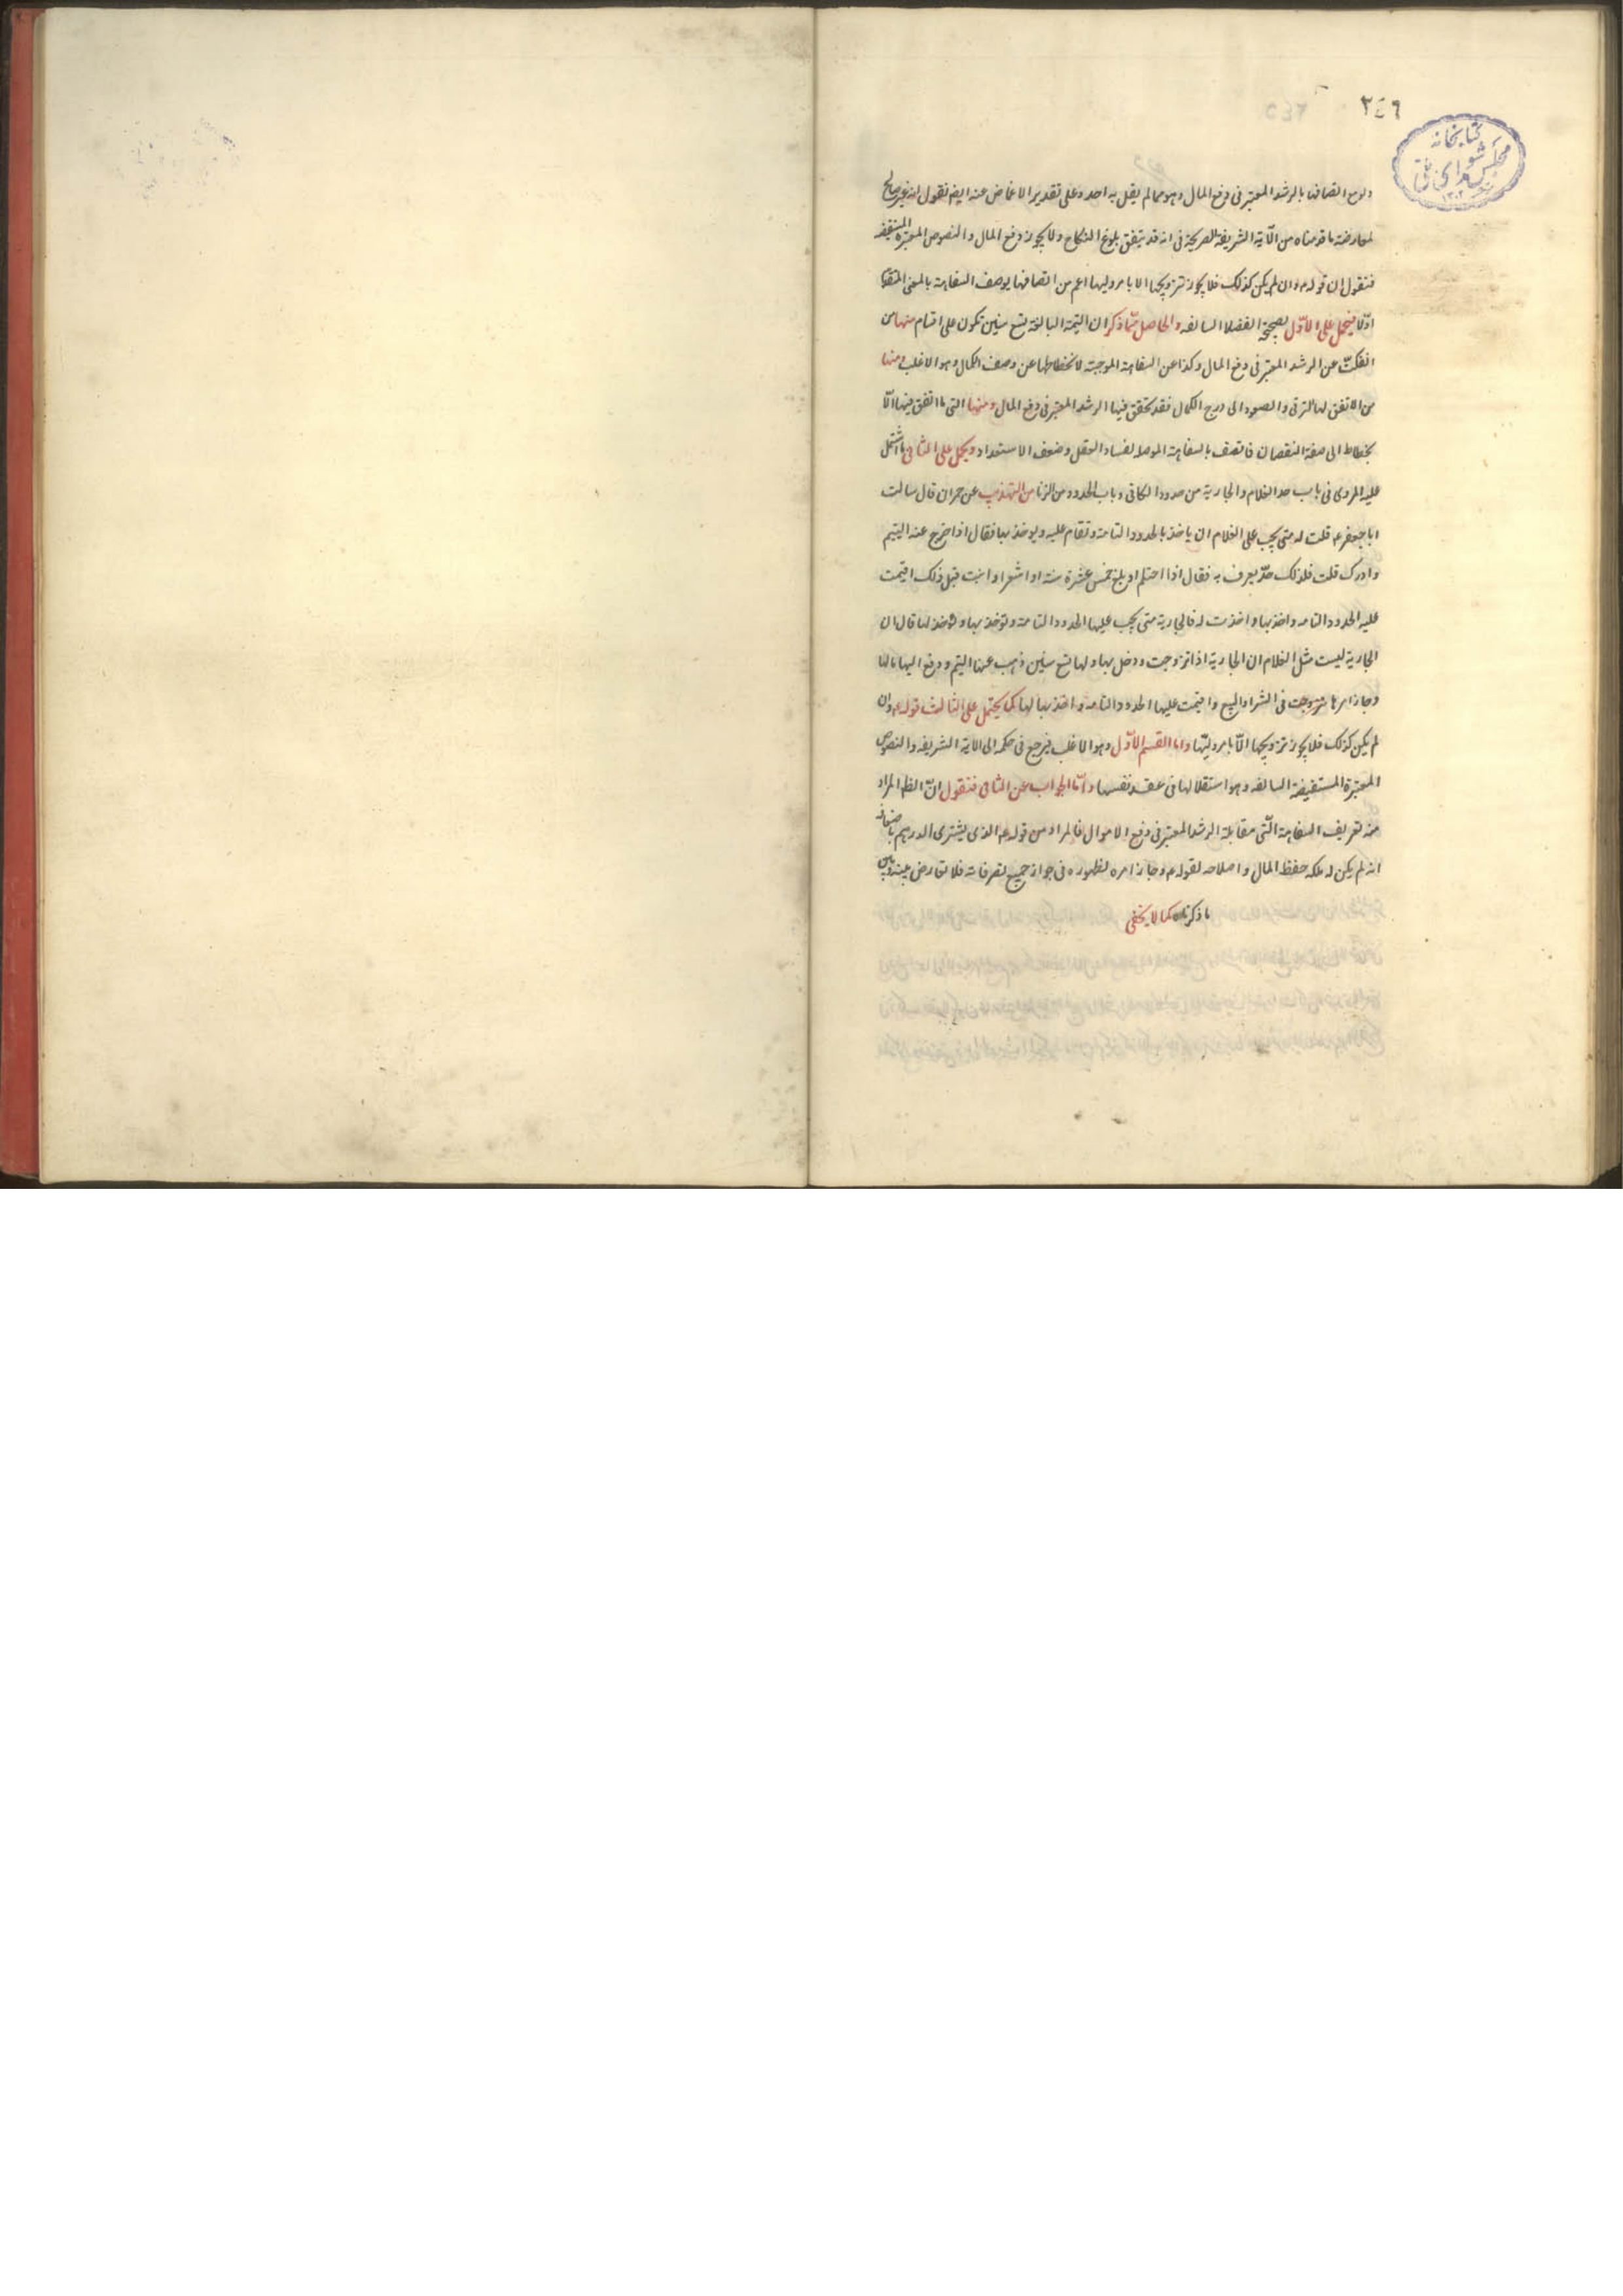 ٣٤٩
كتابخانه
مجلس شوراى
ولوع اتصافها بالرشد المعتبر فى دفع المال وهو مما لم يقل به احد وعلى تقدير الاغماض عنه ايضا نقول انه غير صالح
لمعارضة ما قدمناه من الآية الشريفة الصريحة فى انه قد يتفق بلوغ النكاح ولا يجوز دفع المال والنصوص المعتبرة المستفيضه
فنقول ان قوله ع وان لم يكن كذلك فلا يجوز تزويجها الا بامر وليها اعم من اتصافها بوصف السفاهة بالمعنى المتقدم
اوّلا فيحمل على الاوّل بصحيحة الفضلاء السالفه والحاصل ممّا ذكر ان اليتيمة البالغة تسع سنين تكون على اقسام منها من
انفكت عن الرشد المعتبر فى دفع المال وكذا عن السفاهة الموجبة لانحطاطها عن وصف الكمال وهو الاغلب ومنها
من الاتفق لها الترقى والصعود الى درج الكمال فقد تحقق فيها الرشد المعتبر فى دفع المال ومنها التى ما اتفق فيها الّا
نخطاط الى صفة النقصان فاتصف بالسفاهة الموصلة لفساد العقل وضعف الاستعداد ويحمل على الثانى ما اشتمل
عليه المروى فى باب حد الغلام والجارية من حدود الكافى وباب الحدود من الزنا من التهذيب عن حمران قال سالت
ابا جعفر ع قلت له متى يجب على الغلام ان ياخذ بالحدود التامة وتقام عليه ويوخذ بها فقال اذا خرج عنه اليتيم
وادرك قلت فلذلك حدّ يعرف به فقال اذا احتلم او بلغ خمس عشرة سنة او اشعر او انبت قبل ذلك اقيمت
عليه الحدود التامه واخذ بها واخذت له فالجارية متى يجب عليها الحدود التامة وتوخذ بها ويوخذ لها قال ان
الجارية ليست مثل الغلام ان الجارية اذا تزوجت ودخل بها ولها تسع سنين ذهب عنها اليتم ودفع اليها مالها
وجاز امرها فى الشراء والبيع واقيمت عليها الحدود التامه واخذ بها لها كما يحتمل على الثالث قوله ع وان
لم يكن كذلك فلا يجوز تزويجها الّا بامر وليّها واما القسم الاوّل وهو الاغلب فيرجع فى حكمه الى الاية الشريفه والنصوص
المعتبرة المستفيضة السالفه وهو استقلالها فى عقد نفسها وامّا الجواب عن الثانى فنقول انّ الظ المراد
منه تعريف السفاهة الّتى مقابلة الرشد المعتبر فى دفع الاموال فالمراد من قوله ع الذى يشترى الدرهم باضعافه
انه لم يكن له ملكه حفظ المال واصلاحه لقوله ع وجاز امره لظهوره فى جواز جميع تصرفاته فلا تعارض بينه وبين
ما ذكرناه كما لا يخفى